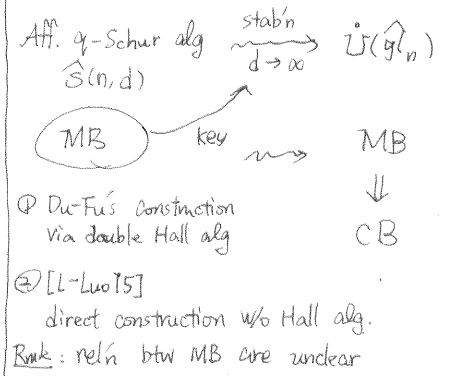 Aff. q-Schur alg stab'n U̇(ĝl_n)
Ŝ(n,d) d→∞
MB key MB
⇓
① Du-Fu's construction CB
via double Hall alg
② [L-Luo15]
direct construction w/o Hall alg.
Rmk : rel'n btw MB are unclear